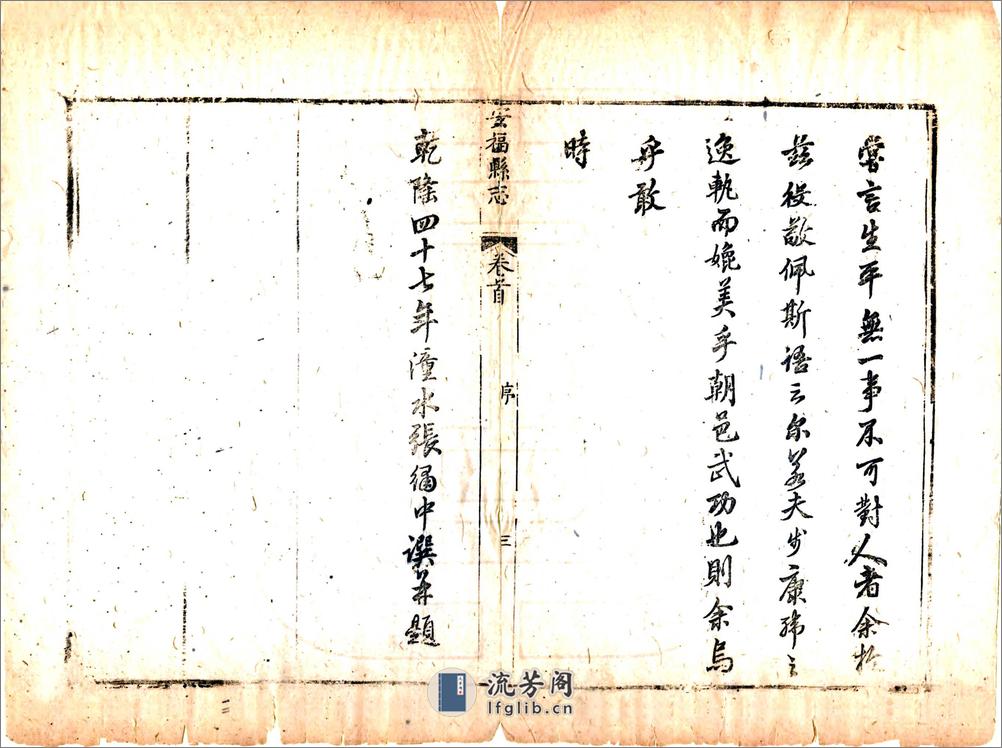 嘗言生平無一事不可對人者余於
茲役敬佩斯語云尔若夫步康韓之
逸軌而媲美乎朝邑武功也則余烏
乎敢
時
安福縣志 卷首 序 三
乾隆四十七年潼水張中譔并題
流芳阁
lfglib.cn